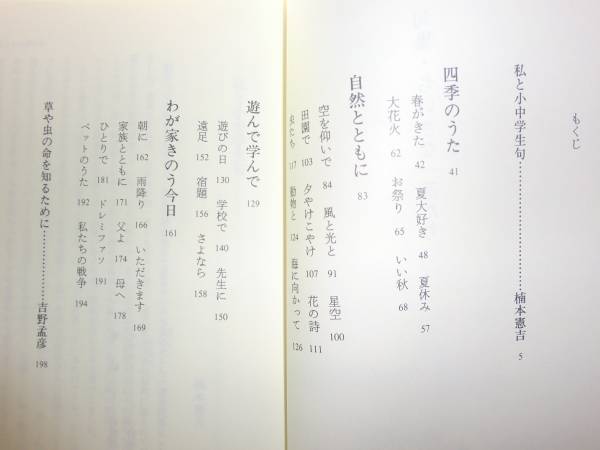 もくじ
私と小中学生句…………………楠本憲吉 5
四季のうた 41
春がきた 42 夏大好き 48 夏休み 57
大花火 62 お祭り 65 いい秋 68
自然とともに 83
空を仰いで 84 風と光と 91 星空 100
田園で 103 夕やけこやけ 107 花の詩 111
虫たち 117 動物と 124 海に向かって 126
遊んで学んで 129
遊びの日 130 学校で 140 先生に 150
遠足 152 宿題 156 さよなら 158
わが家きのう今日 161
朝に 162 雨降り 166 いただきます 169
家族とともに 171 父よ 174 母へ 178
ひとりで 181 ドレミファソ 191
ペットのうた 192 私たちの戦争 194
草や虫の命を知るために…………………吉野孟彦 198